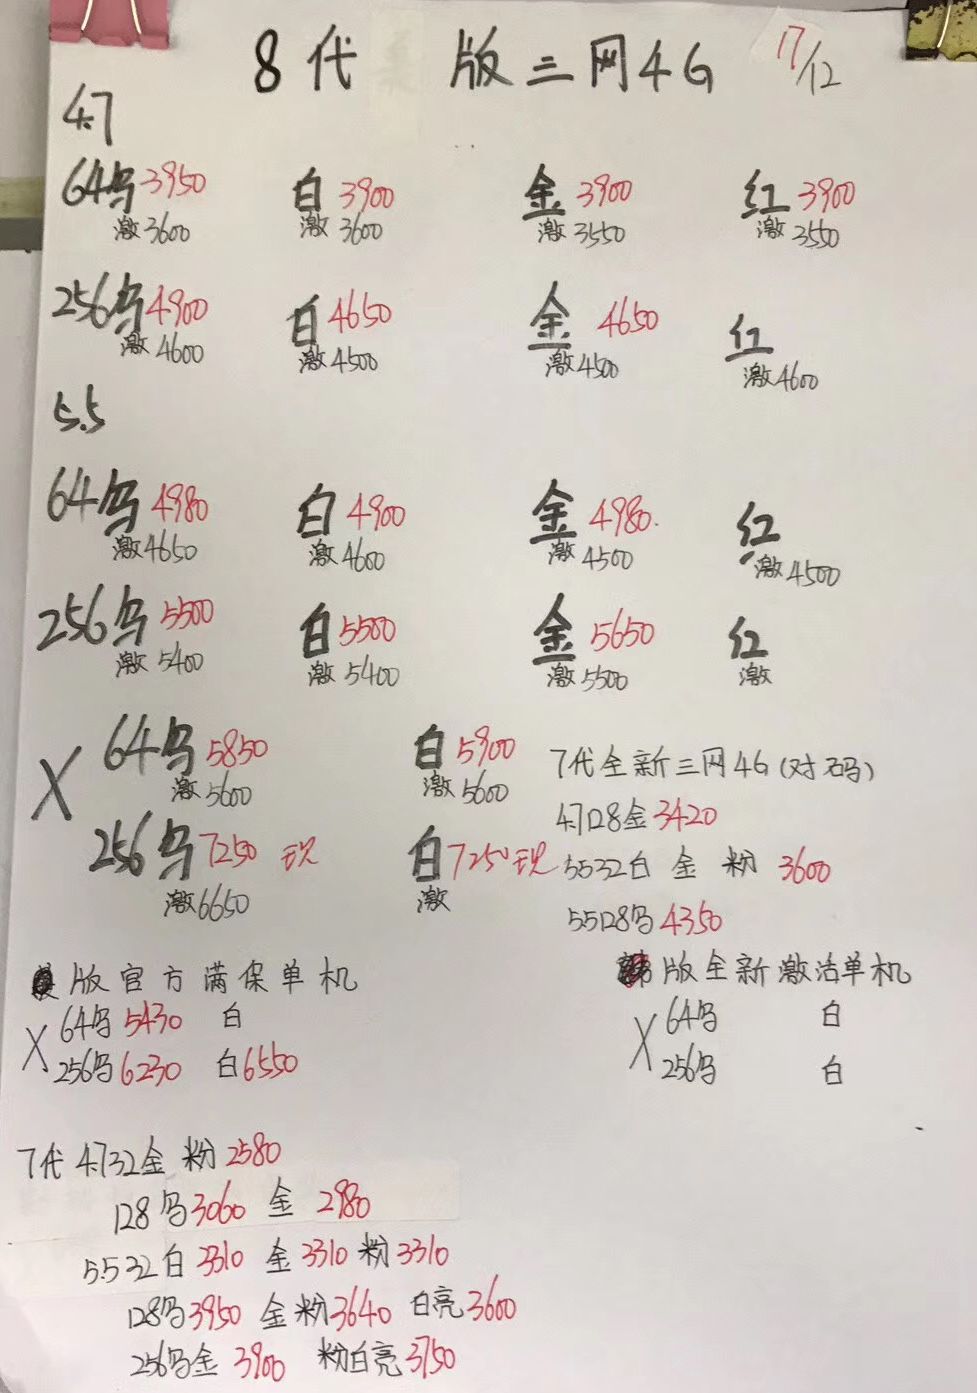 8代 版三网4G 17/12
4.7
64乌3950 白3900 金3900 红3900
激3600 激3600 激3550 激3550
256乌4900 白4650 金4650 红
激4600 激4500 激4500 激4600
5.5
64乌4980 白4900 金4980. 红
激4650 激4600 激4500 激4500
256乌5500 白5500 金5650 红
激5400 激5400 激5500 激
X 64乌5850 白5900
激5600 激5600
256乌7250现 白7250现
激6650 激
7代全新三网4G(对码)
4.7128金3420
5532白 金 粉 3600
55128乌4350
版官方满保单机
X 64乌5430 白
256乌6230 白6550
版全新激活单机
X 64乌 白
256乌 白
7代 4.732金 粉2580
128乌3060 金 2980
5.532白 3310 金3310 粉3310
128乌3950 金粉3640 白亮3600
256乌金 3900 粉白亮3750